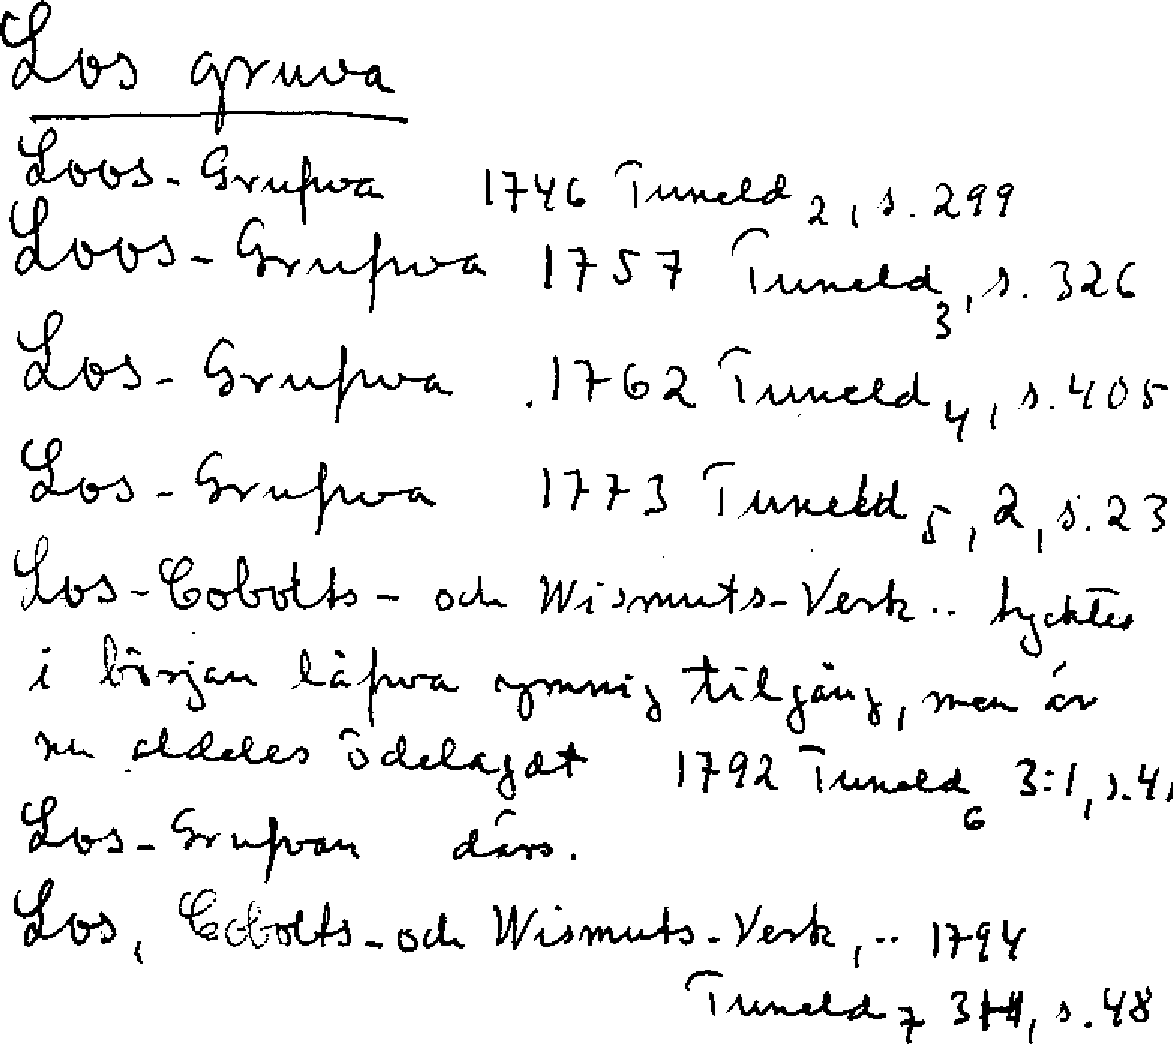 Los gruva
Loos-Grufwa 1746 Tuneld 2, s. 299
Loos-Grufwa 1757 Tuneld 3, s. 326
Los-Grufwa 1762 Tuneld 4, s. 405
Los-Grufwa 1773 Tuneld 5, 2, s. 23
Los-Cobolts- och Wismuts-Verk .. tycktes
i början läfwa ymnig tilgång, men är
nu aldeles ödelagdt 1792 Tuneld 6 3:1, s. 4
Los-Grufvan därs.
Los, Cobolts- och Wismuts-Verk, .. 1794
Tuneld 7 s. 48